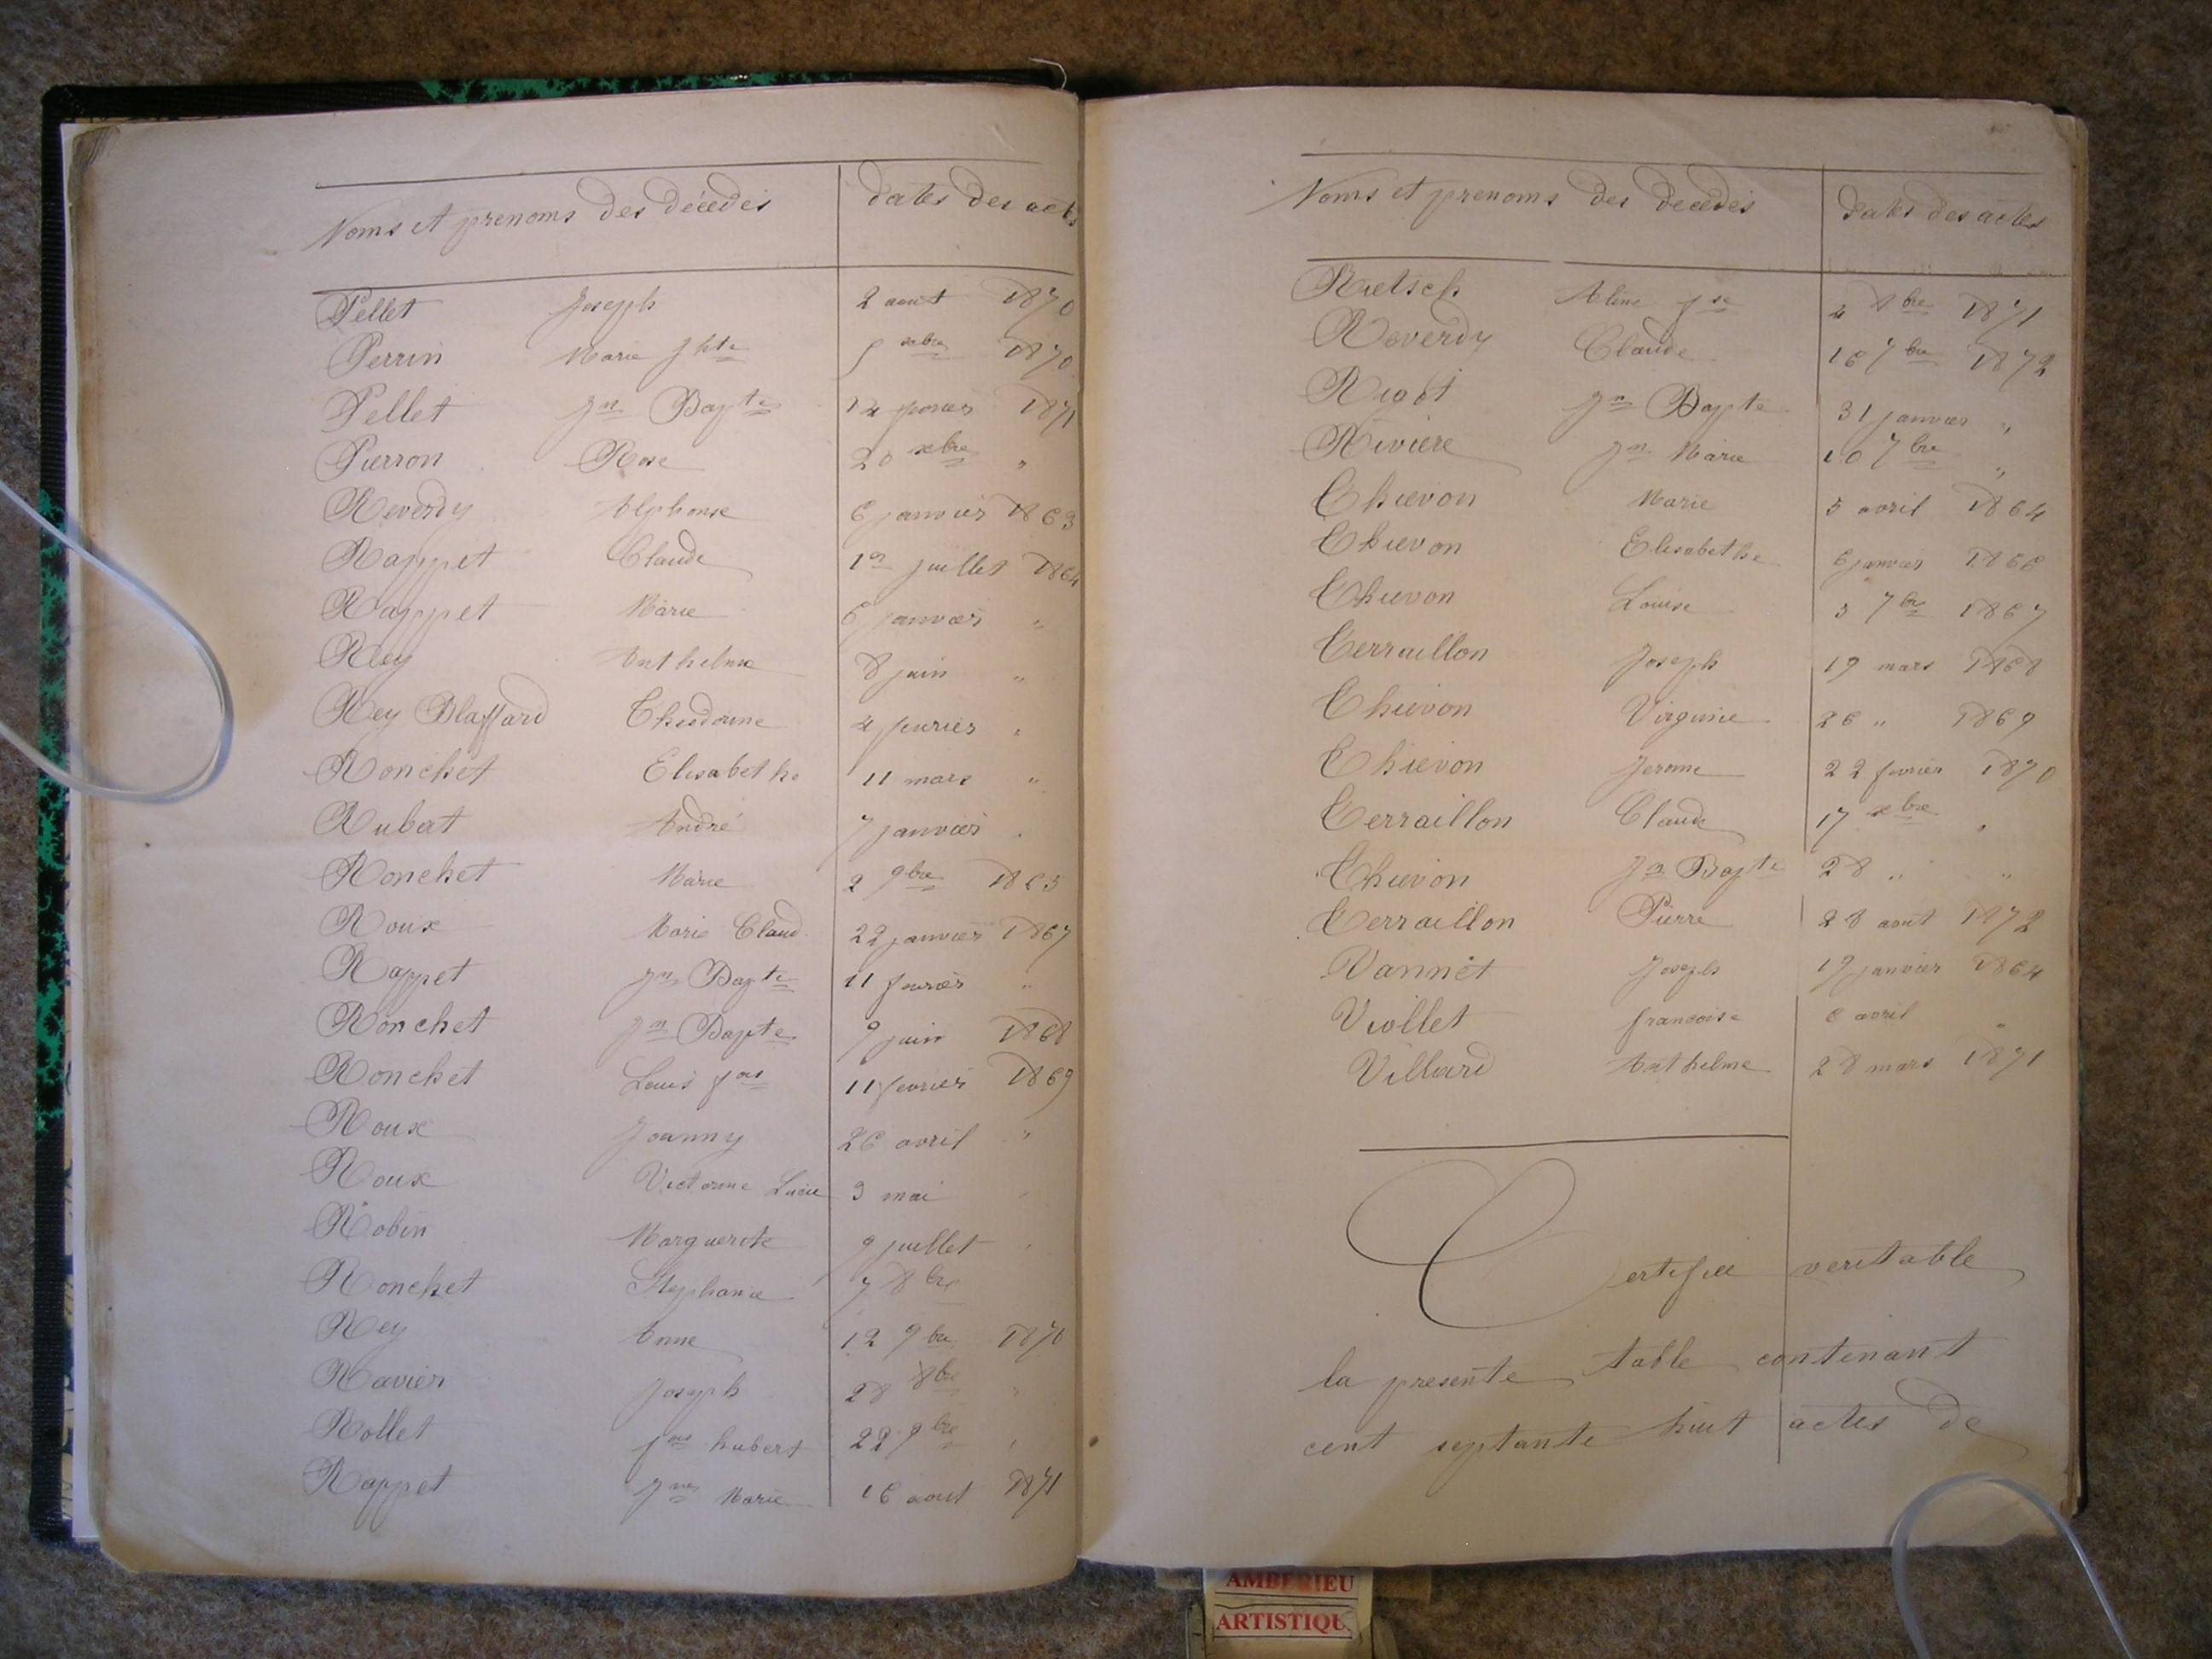 Noms et prenoms des décedés dates des actes
Pellet Joseph 2 aout 1870
Perrin Marie Jhte 5 xbre 1870
Pellet Jn Bapte 14 fevrier 1871
Pierron Rose 20 xbre "
Reverdy Alphonse 6 janvier 1863
Rappet Claude 1er juillet 1864
Rappet Marie 6 janvier "
Rey Anthelme 8 juin "
Rey Blaffard Theodorine 4 fevrier "
Ronchet Elisabethe 11 mars "
Rubat André 7 janvier "
Ronchet Marie 2 9bre 1865
Roux Marie Claud. 22 janvier 1867
Rappet Jn Bapte 11 fevrier "
Ronchet Jn Bapte 9 juin 1868
Ronchet Louis fois 11 fevrier 1869
Roux Joanny 26 avril "
Roux Victorine Lucie 3 mai "
Robin Marguerite 9 juillet "
Ronchet Stephanie 7 8bre
Rey Anne 12 9bre 1870
Ravier Joseph 28 8bre "
Rollet fois hubert 22 9bre "
Rappet Jne Marie 16 aout 1871
Noms et prenoms des decedés dates des actes
Rietsch Aline Jse 4 8bre 1871
Reverdy Claude 16 7bre 1872
Rigot Jn Bapte 31 janvier "
Riviere Jn Marie 10 7bre "
Thievon Marie 5 avril 1864
Thievon Elisabethe 6 janvier 1866
Thievon Louise 5 7bre 1867
Terraillon Joseph 19 mars 1868
Thievon Virginie 26 " 1869
Thievon Jerome 22 fevrier 1870
Terraillon Claude 17 xbre "
Thievon Jn Bapte 28 " "
Terraillon Pierre 28 aout 1872
Vannet Joseph 19 janvier 1864
Viollet francoise 6 avril "
Villard Anthelme 28 mars 1871
Certifiée veritable
la presente table contenant
cent septante huit actes de
AMBERIEU
ARTISTIQU